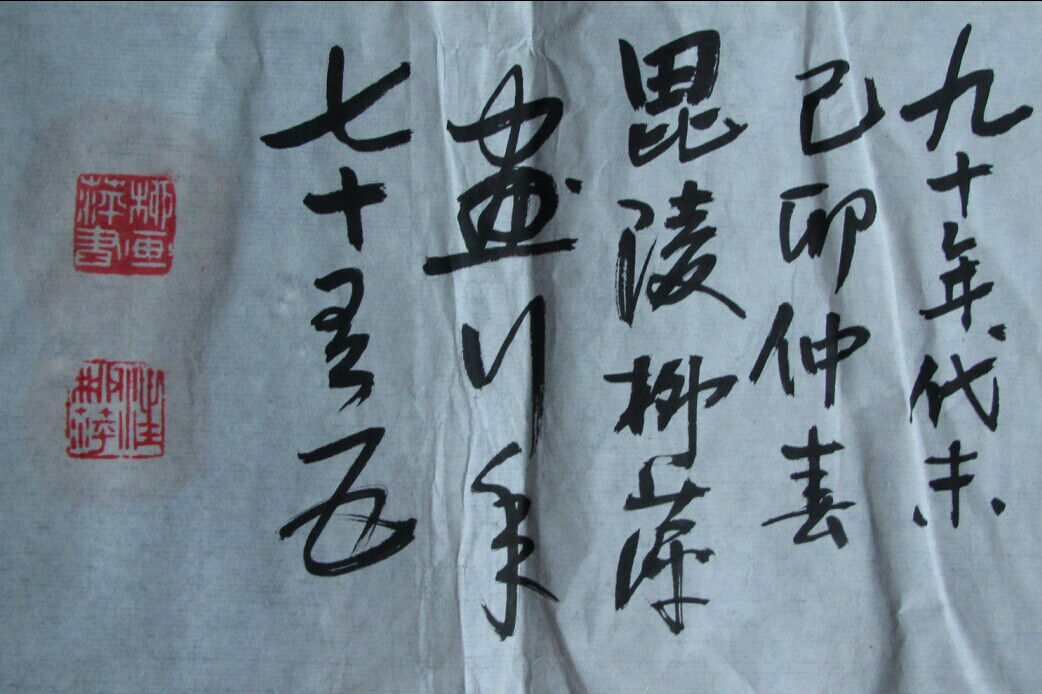 九十年代末
己卯仲春
毘陵柳萍
畫行年
七十有五
柳画
萍書
柳萍